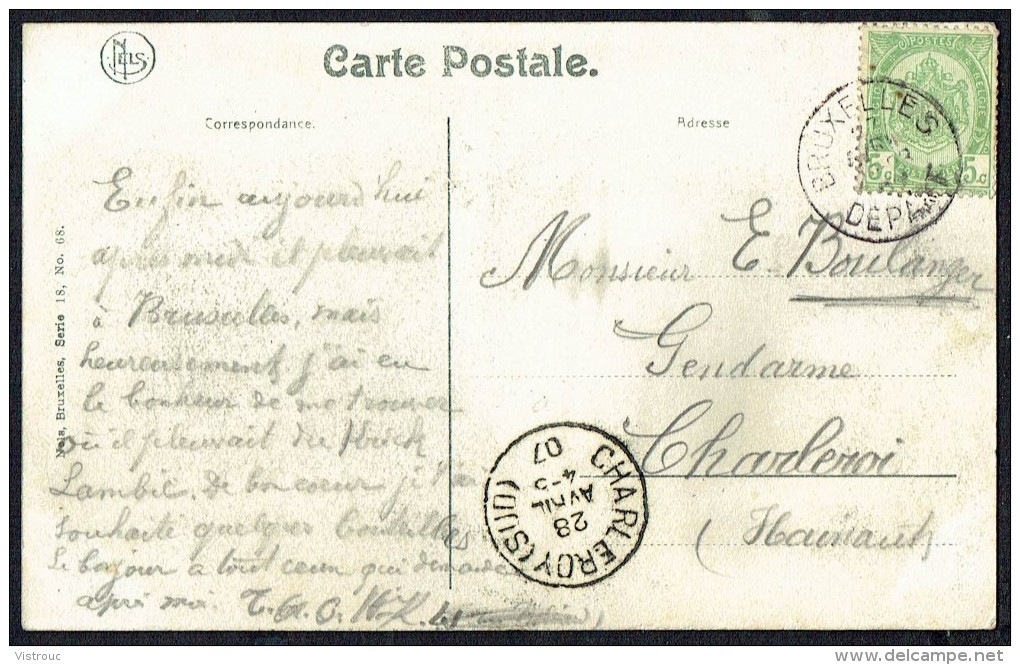 NELS
Carte Postale.
Correspondance.
Adresse
Nels, Bruxelles, Serie 18, No. 68.
POSTES
5c 5c
BRUXELLES
DEPART
Enfin aujourd'hui
après midi il pleuvait
à Bruxelles, mais
heureusement j'ai eu
le bonheur de me trouver
où il pleuvait du
Lambic, de bon coeur je t'ai
souhaité quelques bouteilles
Le bojour a tout ceux qui demande
apré moi.
Monsieur E. Boulanger
Gendarme
Charleroi
(Hainaut)
CHARLEROY (SUD)
28
AVRIL
4-5
07
Vistrouc
delcampe.net